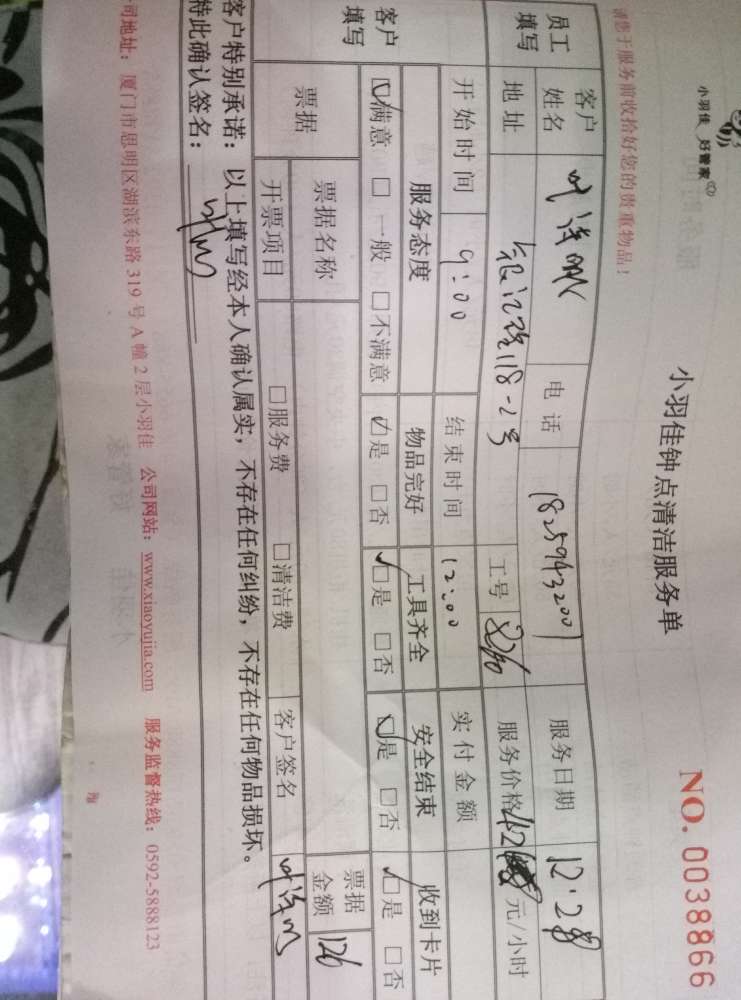 小羽佳 好管家
小羽佳钟点清洁服务单
NO. 0038866
请您于服务前收拾好您的贵重物品！
员工填写 客户姓名 电话 18259432001 服务日期
地址 118-2号 工号 服务价格 元/小时
开始时间 9:00 结束时间 12:00 实付金额
客户填写 服务态度 物品完好 工具齐全 安全结束 收到卡片
☑满意 □一般 □不满意 ☑是 □否 ☑是 □否 ☑是 □否 ☑是 □否
票据 票据名称 票据金额 126
开票项目 □服务费 □清洁费 客户签名
客户特别承诺：以上填写经本人确认属实，不存在任何纠纷，不存在任何物品损坏。
特此确认签名：
司地址：厦门市思明区湖滨东路319号A幢2层小羽佳 公司网站：www.xiaoyujia.com 服务监督热线：0592-5888123